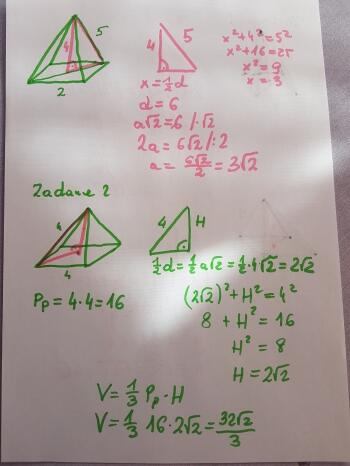 4 5
2
4 5
x²+4²=5²
x²+16=25
x²=9
x=3
x=½d
d=6
a√2=6 /·√2
2a=6√2/:2
a=6√2/2=3√2
Zadanie 2
4
4
4 H
½d=½a√2=½·4√2=2√2
Pp=4·4=16
(2√2)²+H²=4²
8+H²=16
H²=8
H=2√2
V=1/3 Pp·H
V=1/3 16·2√2=32√2/3